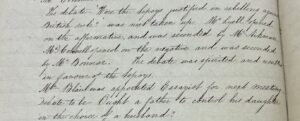 The debate "Were the Sepoys justified in rebelling against
British rule" was not taken up. Mr Lyall opened
on the affirmative, and was seconded by Mr
opened on the negative and was seconded
by Mr Bonnor. The debate was spirited and
in favour of the Sepoys.
Mr Blair was appointed Essayist for next meeting
Debate to be Ought a father to control his daughter
in the choice of a husband?